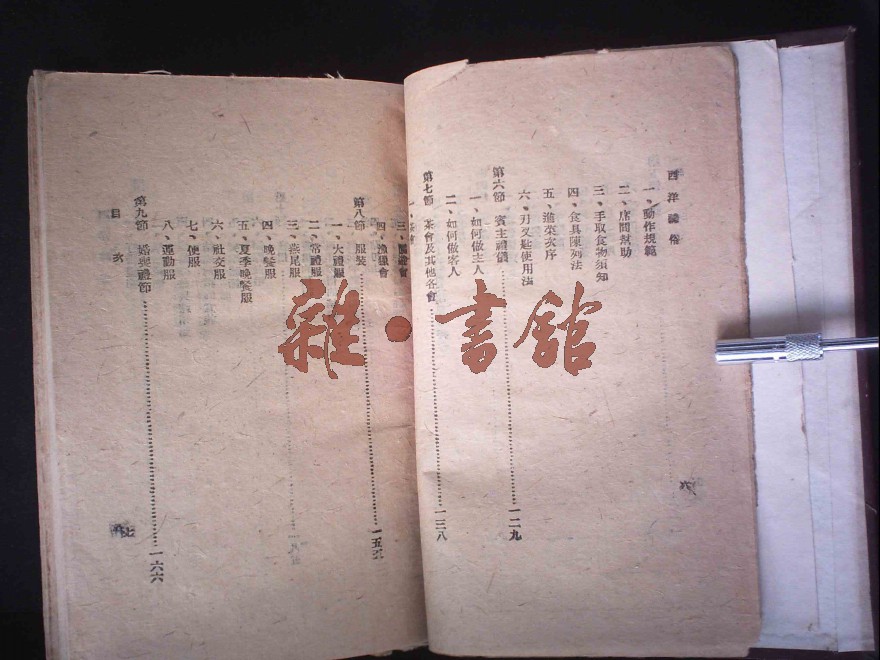 西洋禮俗
一、動作規範
二、席間幫助
三、手取食物須知
四、食具陳列法
五、進菜次序
六、刀叉匙使用法
第六節 賓主禮儀……一二九
一、如何做主人
二、如何做客人
第七節 茶會及其他各會……一三八
一、茶會
三、
四、漁獵會
第八節 服裝……一五三
一、大禮服
二、常禮服
三、燕尾服
四、晚餐服
五、夏季晚餐服
六、社交服
七、便服
八、運動服
第九節 婚喪禮節……一六六
目次
七
雜·書舘